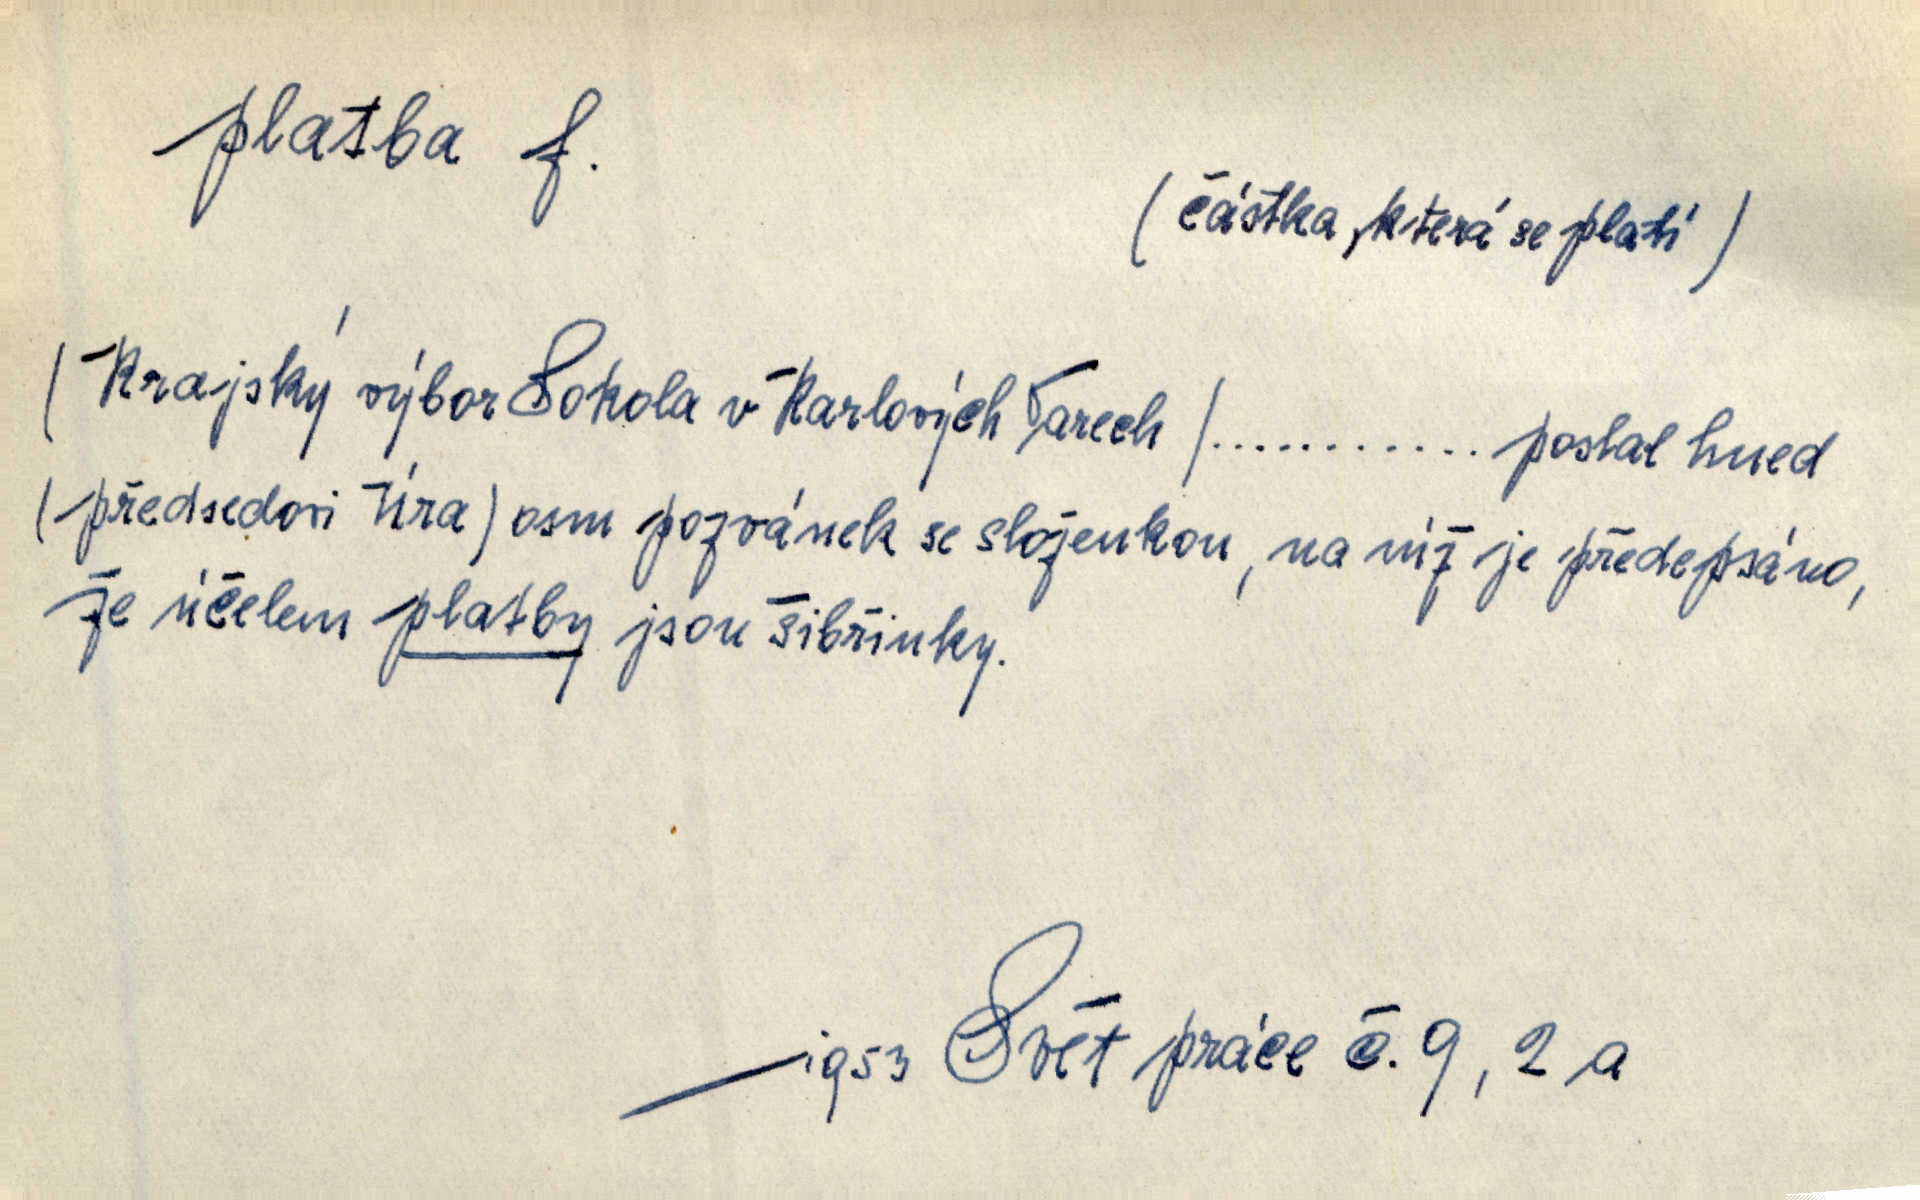 platba f.
(částka, která se platí)
(Krajský výbor Sokola v Karlových Varech)............ poslal hned
(předsedovi Tíra) osm pozvánek se složenkou, na níž je předepsáno,
že účelem platby jsou šibřinky.
1953 Svět práce č. 9, 2 a